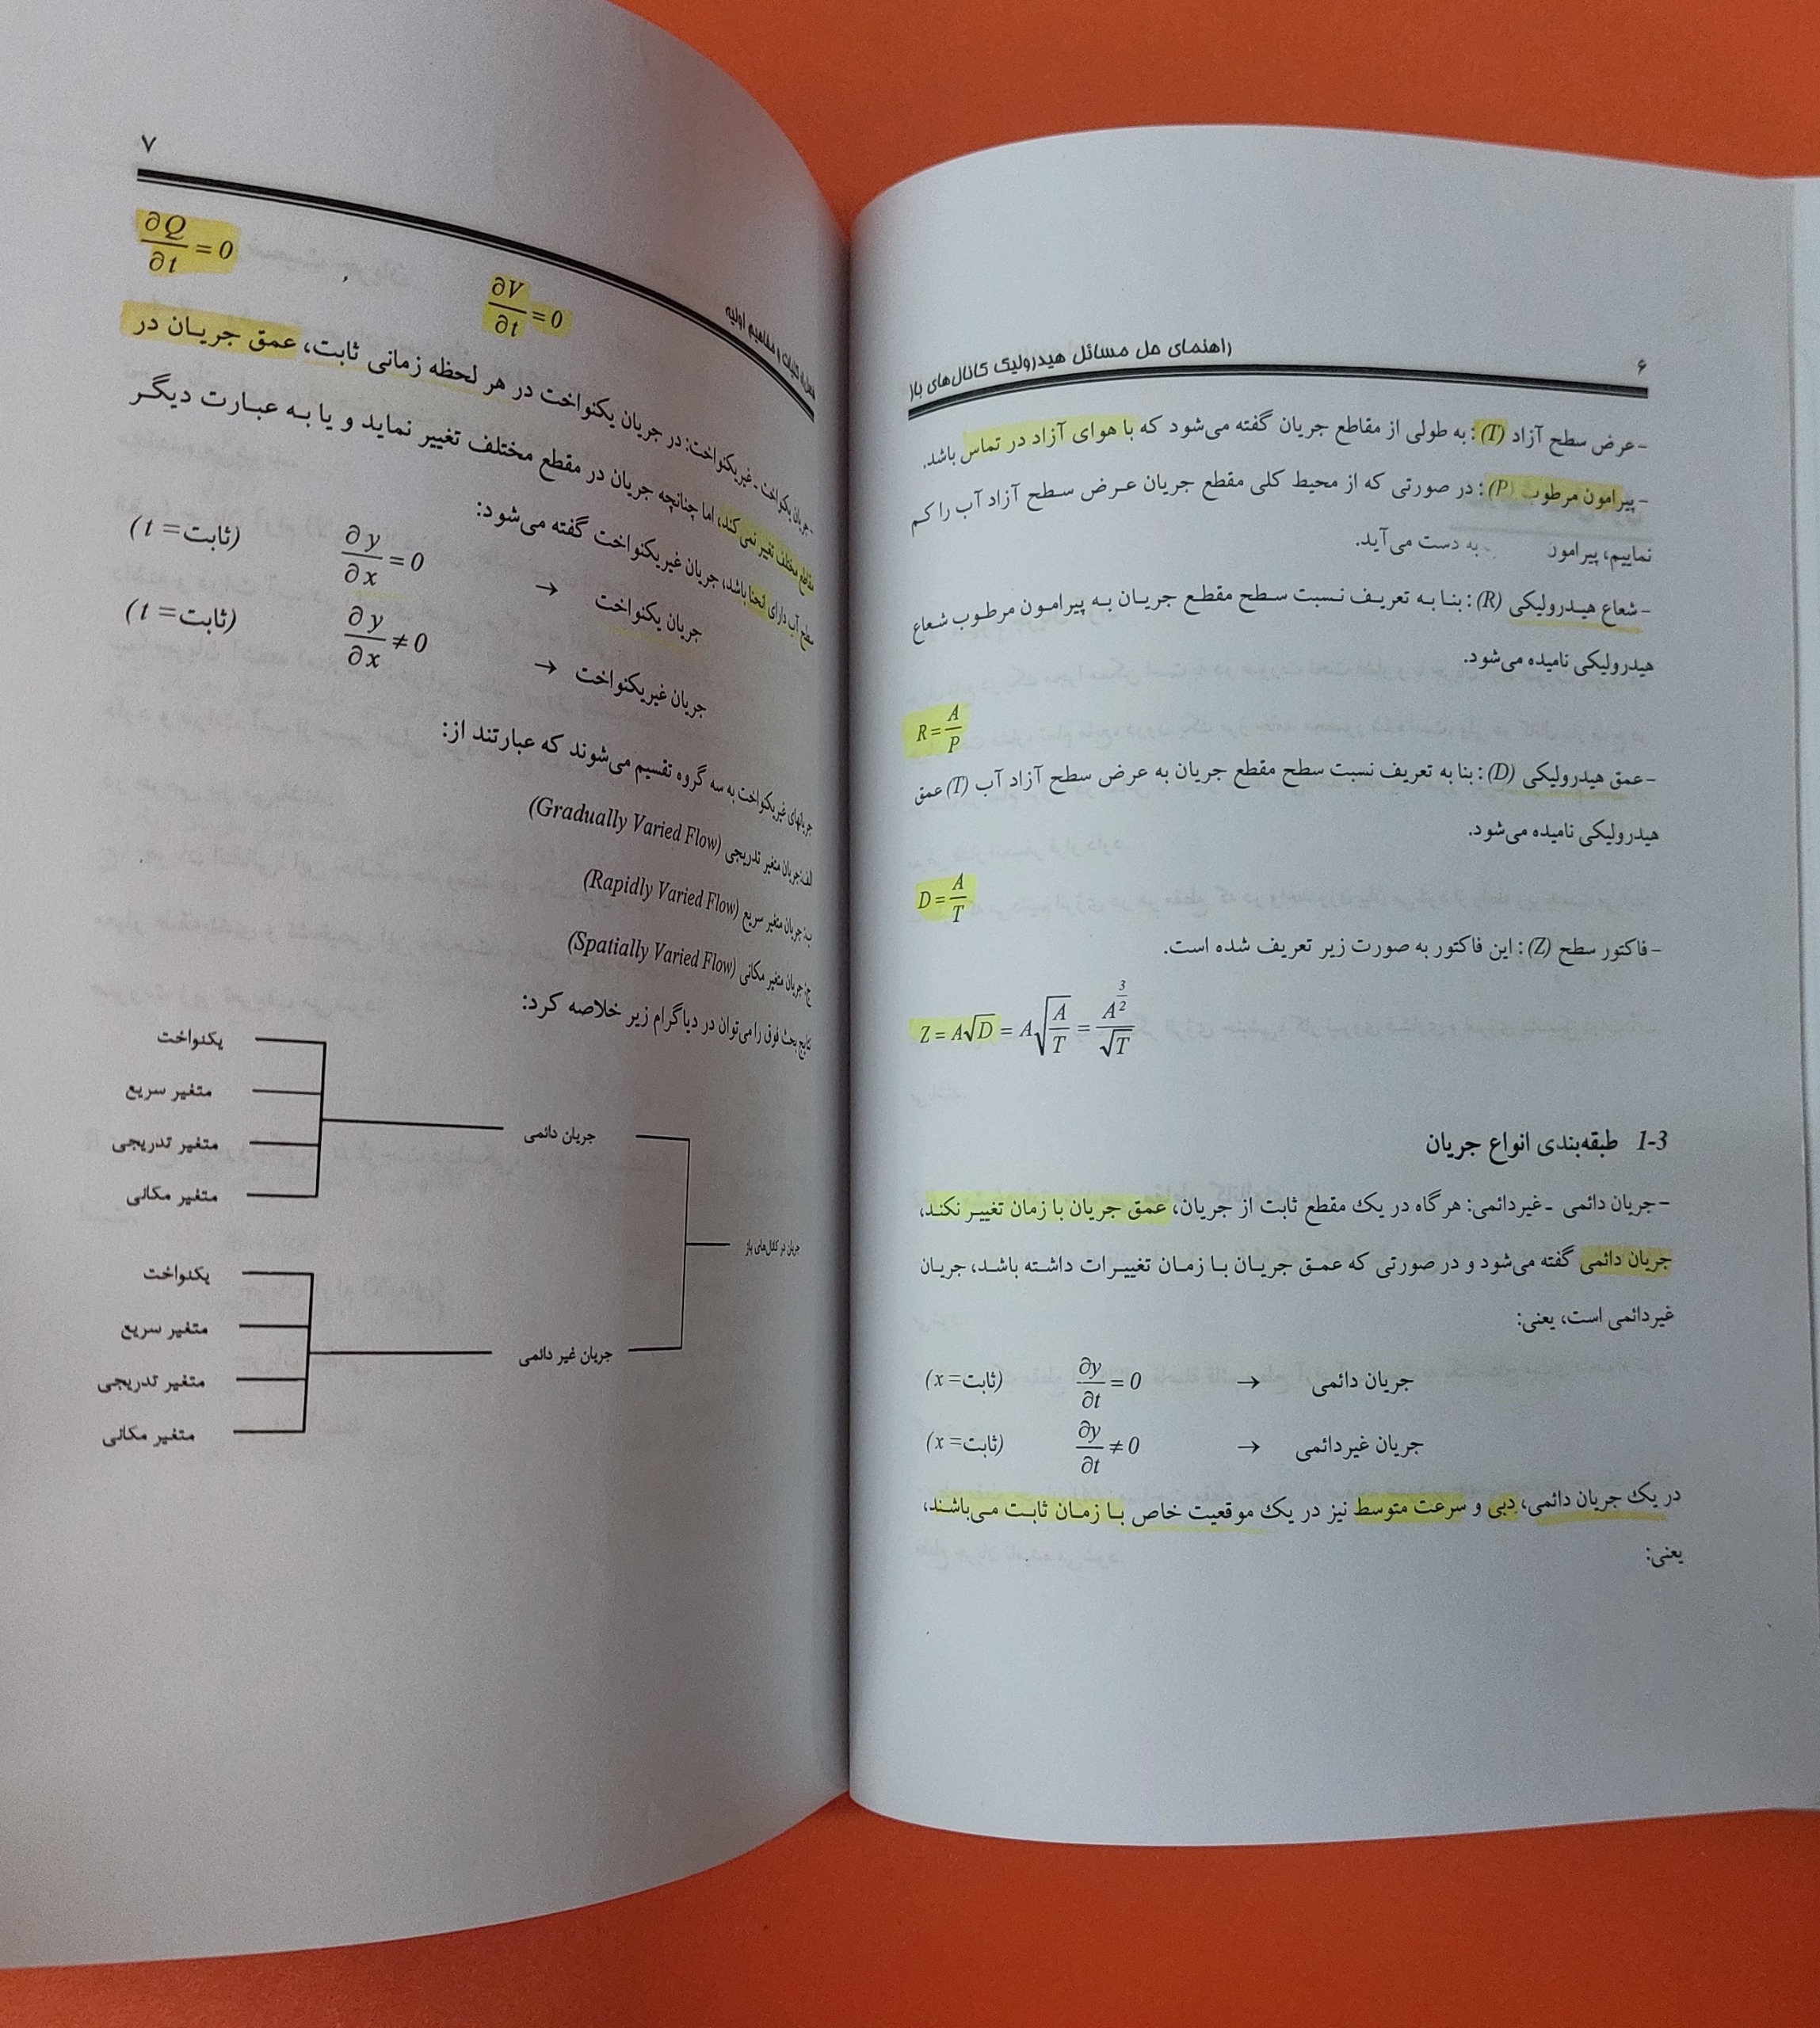 ۶
راهنمای حل مسائل هیدرولیک کانال‌های باز
-عرض سطح آزاد (T): به طولی از مقاطع جریان گفته می‌شود که با هوای آزاد در تماس باشد.
-پیرامون مرطوب (P): در صورتی که از محیط کلی مقطع جریان عرض سطح آزاد آب را کم
نماییم، پیرامون به دست می‌آید.
-شعاع هیدرولیکی (R): بنا به تعریف نسبت سطح مقطع جریان به پیرامون مرطوب شعاع
هیدرولیکی نامیده می‌شود.
R = A/P
-عمق هیدرولیکی (D): بنا به تعریف نسبت سطح مقطع جریان به عرض سطح آزاد آب (T) عمق
هیدرولیکی نامیده می‌شود.
D = A/T
-فاکتور سطح (Z): این فاکتور به صورت زیر تعریف شده است.
Z = A√D = A√(A/T) = A^(3/2)/√T
1-3 طبقه‌بندی انواع جریان
-جریان دائمی -غیردائمی: هرگاه در یک مقطع ثابت از جریان، عمق جریان با زمان تغییر نکند،
جریان دائمی گفته می‌شود و در صورتی که عمق جریان با زمان تغییرات داشته باشد، جریان
غیردائمی است، یعنی:
جریان دائمی → ∂y/∂t = 0 (ثابت = x)
جریان غیردائمی → ∂y/∂t ≠ 0 (ثابت = x)
در یک جریان دائمی، دبی و سرعت متوسط نیز در یک موقعیت خاص با زمان ثابت می‌باشند،
یعنی:
فصل کلیات و مفاهیم اولیه
۷
∂V/∂t = 0 , ∂Q/∂t = 0
-جریان یکنواخت -غیریکنواخت: در جریان یکنواخت در هر لحظه زمانی ثابت، عمق جریان در
مقاطع مختلف تغییر نمی‌کند، اما چنانچه جریان در مقطع مختلف تغییر نماید و یا به عبارت دیگر
سطح آب دارای انحنا باشد، جریان غیریکنواخت گفته می‌شود:
جریان یکنواخت → ∂y/∂x = 0 (ثابت = t)
جریان غیریکنواخت → ∂y/∂x ≠ 0 (ثابت = t)
جریانهای غیریکنواخت به سه گروه تقسیم می‌شوند که عبارتند از:
الف:جریان متغیر تدریجی (Gradually Varied Flow)
ب: جریان متغیر سریع (Rapidly Varied Flow)
ج: جریان متغیر مکانی (Spatially Varied Flow)
نتایج بحث فوق را می‌توان در دیاگرام زیر خلاصه کرد:
جریان در کانال‌های باز
جریان دائمی
یکنواخت
متغیر سریع
متغیر تدریجی
متغیر مکانی
جریان غیر دائمی
یکنواخت
متغیر سریع
متغیر تدریجی
متغیر مکانی